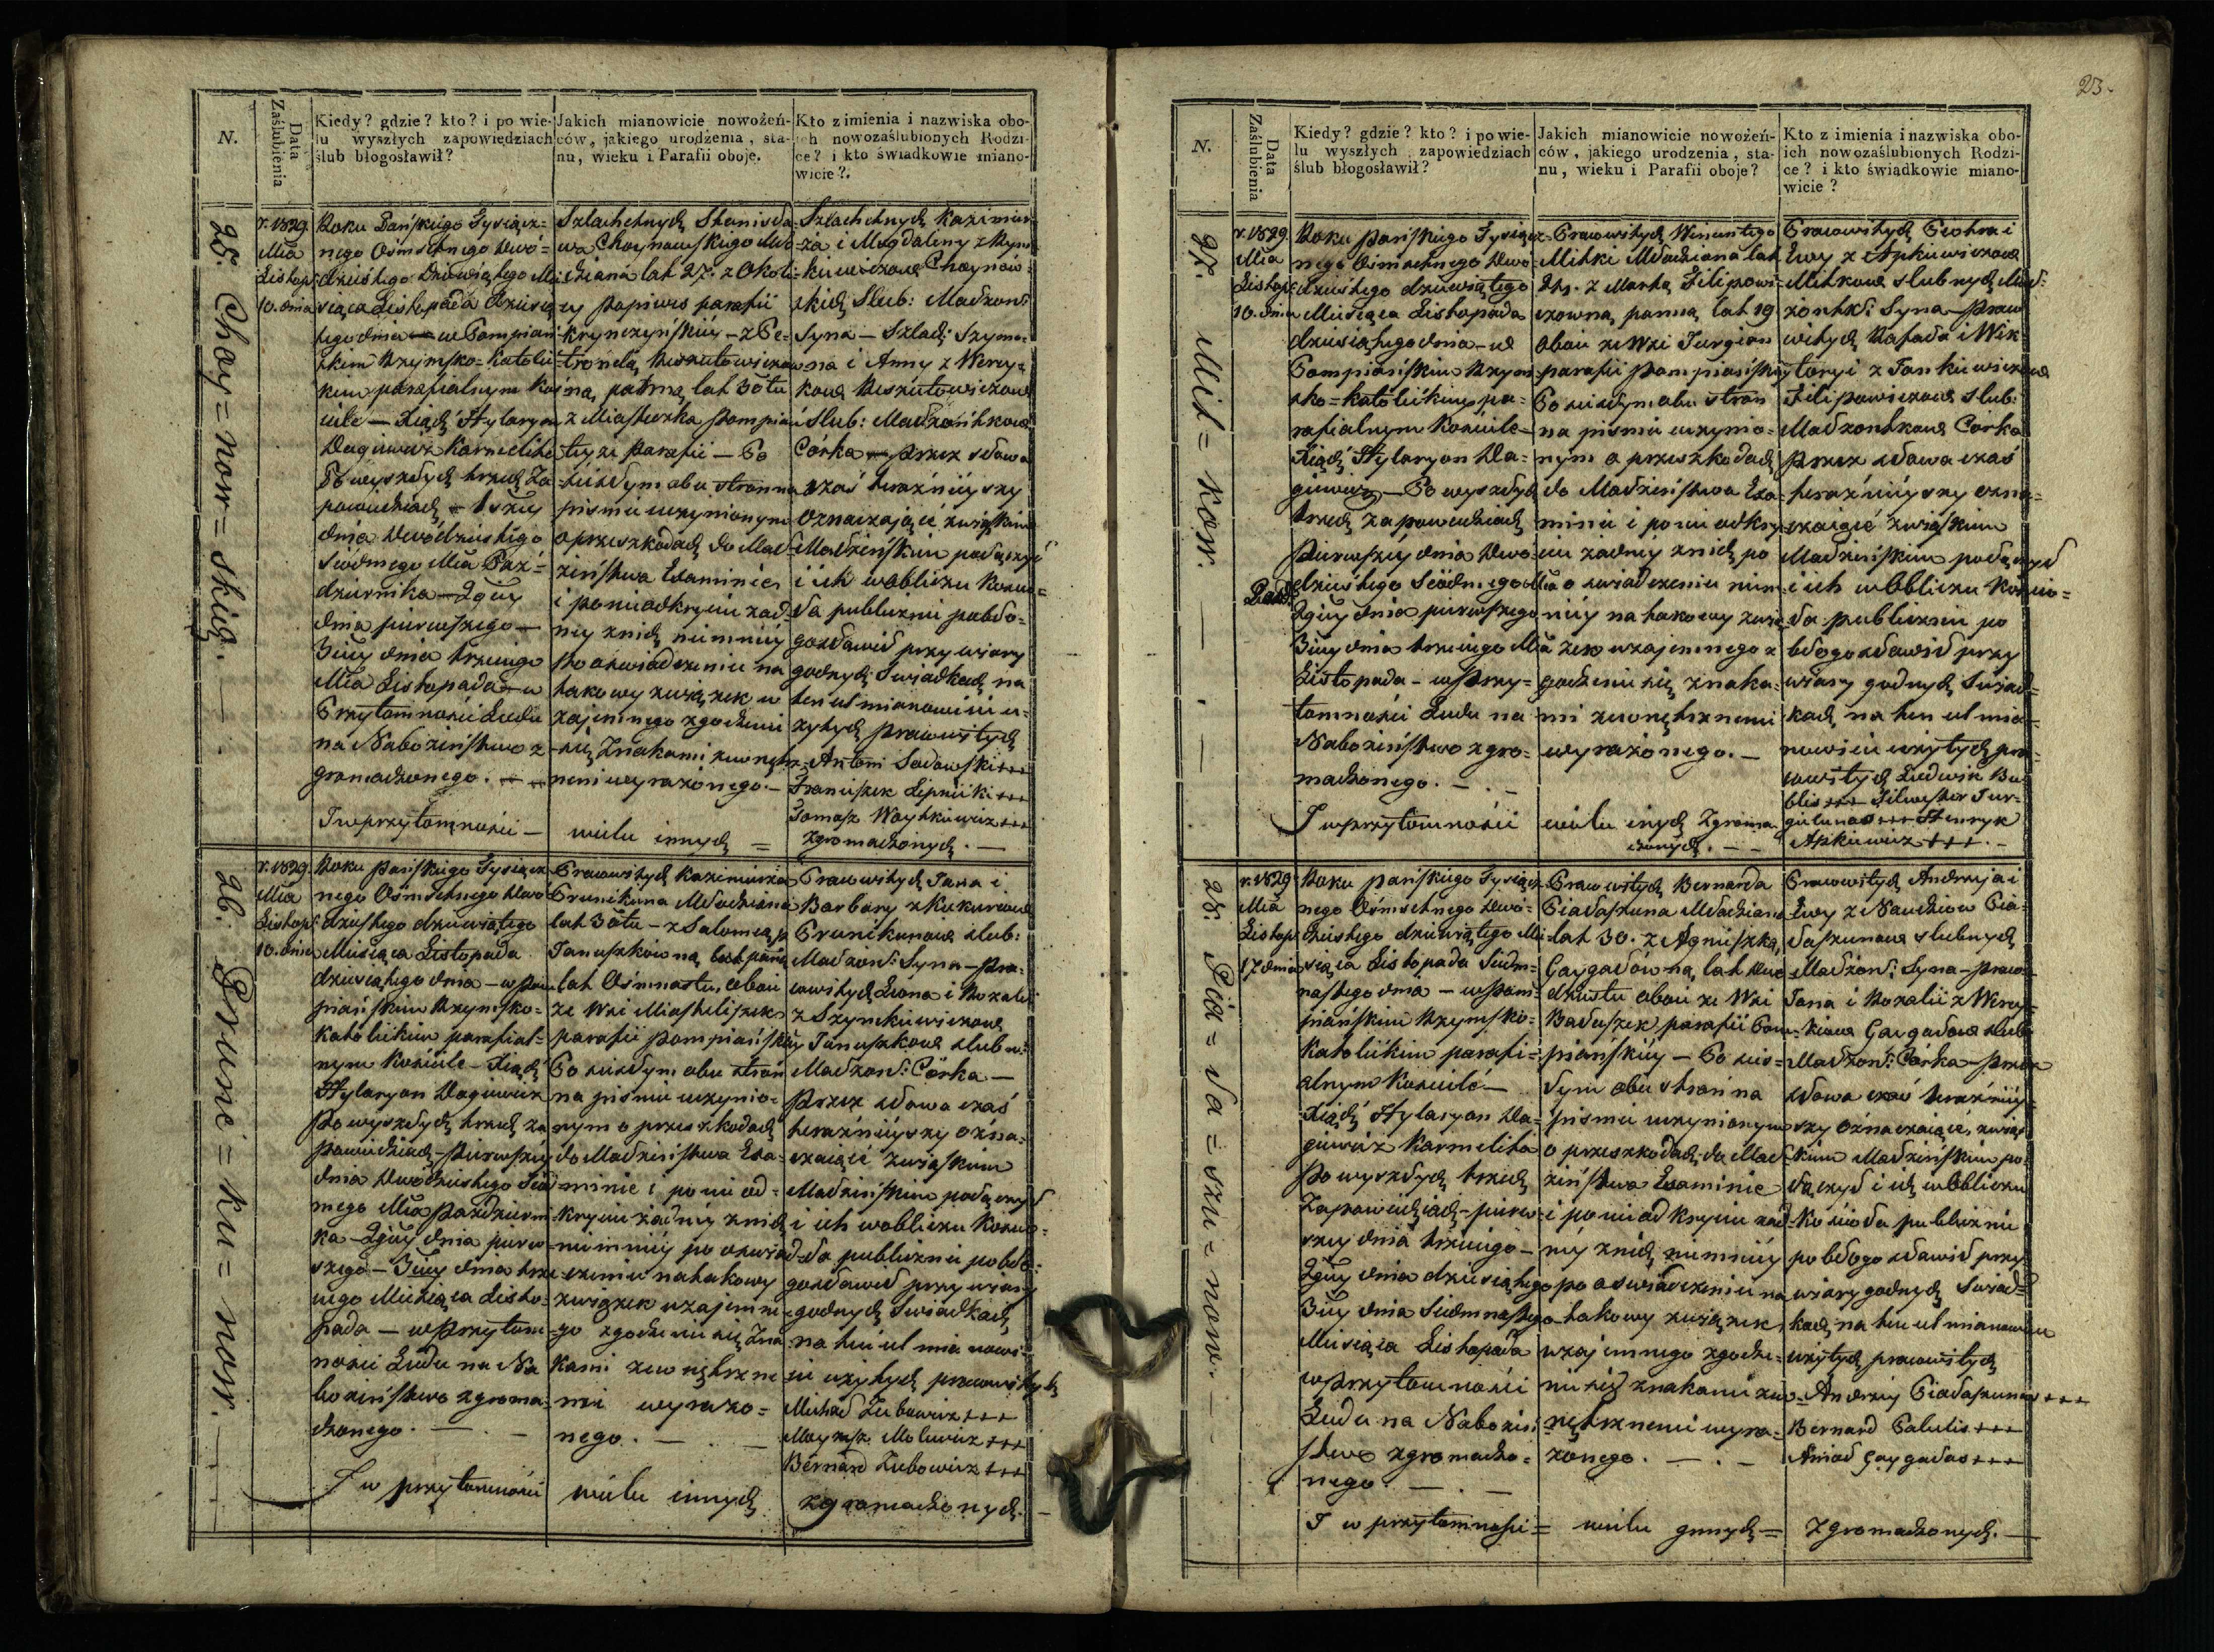 N.
Data Zaślubienia
Kiedy? gdzie? kto? i po wie-
lu wyszłych zapowiedziach
ślub błogosławił?
Jakich mianowicie nowożeń-
ców, jakiego urodzenia, sta-
nu, wieku i Parafii oboje.
Kto z imienia i nazwiska obo-
ich nowozaślubionych Rodzi-
ce? i kto świadkowie miano-
wicie?.
25. Choy=now=skich.
r. 1829.
Mca
Listop:
10. dnia
Roku Pańskiego Tysiącz=
nego Ośmsetnego Dwó=
dziestego Dziewiątego Mie
siąca Listopada dziesią
tego dnia — w Pompiań
skim Rzymsko=Katolic
kim parafialnym Koś
ciele — Xiądz Hylaryon
Daginiewicz Karmelita
Po wyszłych trzech Za
powiedziach — 1széy
dnia dwódziestego
siódmego Mca Paź=
dziernika — 2giéy
dnia pierwszego —
3ciéy dnia trzeciego
Mca Listopada — w
Przytomności Ludu
na Nabożeństwo z
gromadzonego. —
I w przytomności —
Szlachetnych Stanisła
wa Choynowskiego Mło
dziana lat 27: z Okoli
cy Popiwes parafii
Krynczyńskiéy — z Pe=
tronelą Reszutowiczów
ną panną lat 30tu
z Miasteczka Pompian
téyże Parafii — Po
ścisłym obu stron na
piśmie uczynionym
o przeszkodach do Mał
żeństwa Examinie
i po nieodkryciu żad=
néy z nich niemniéy
po oświadczeniu na
takowy związek w
zajemnego zgodzenia
się Znakami zewnętrz=
nemi wyrażonego. —
wielu innych =
Szlachetnych Kazimier
za i Magdaleny z Rym
kiewiczów Choynow=
skich Slub: Małżon:
Syna — Szlach: Szymo=
na i Anny z Wery=
ków Reszutowiczów
Slub: Małżonków
Córkę — przez słowa
czas teraźniéyszy
oznaczające związkiem
Małżeńskim połączył
i ich w obliczu Kościo=
ła publicznie pobło=
gosławił przy wiary
godnych Swiadkach na
ten cel mianowicie u=
żytych prawowitych
Antoni Sadowski+++
Franciszek Lipnicki+++
Tomasz Woytkiewicz+++
Zgromadzonych. —
26. Pruni=ku=now. —
r. 1829.
Mca
Listop:
10. dnia
Roku pańskiego Tysiącz
nego Ośmsetnego dwó
dziestego dziewiątego
Miesiąca Listopada
dziesiątego dnia — w Pom
piańskim Rzymsko=
Katolickim parafial=
nym Kościele — Xiądz
Hylaryon Daginiewicz
Po wyszłych trzech za
powiedziach — pierwszéy
dnia dwódziestego siód
mego Mca Październi
ka — 2giéy dnia pierw
szego — 3ciéy dnia trze
ciego Miesiąca Listo=
pada — w Przytom
ności Ludu na Na
bożeństwo zgroma=
dzonego. —
I w przytomności
Prawowitych Kazimierza
Prunikuna Młodziana
lat 30tu — z Salomeą
Januszkówną panną
lat Ośmnastu, oboie
ze Wsi Miasteliszek
parafii Pompiańskiéy
Po ścisłym obu stron
na piśmie uczynio=
nym o przeszkodach
do Małżeństwa Exa=
minie i po nie od=
kryciu żadnéy z nich
niemniéy po oświad
czeniu na takowy
związek wzajemne=
go zgodzenia się Zna
kami zewnętrzne
mi wyrażo=
nego. —
wielu innych
Prawowitych Jana i
Barbary z Kukurów
Prunikunów slub:
Małżon: Syna — Pra=
wowitych Leona i Rozalii
z Szymkiewiczów
Januszków slubn:
Małżon: Córkę —
Przez słowa czas
teraźniéyszy ozna=
czaiące związkiem
Małżeńskim połączył
i ich w obliczu Kościo=
ła publicznie pobło=
gosławił przy wiary
godnych Swiadkach
na ten cel mianowi
cie użytych prawowitych
Michał Zubowicz+++
Bernard Zubowicz+++
zgromadzonych. —
23.
N.
Data Zaślubienia
Kiedy? gdzie? kto? i po wie-
lu wyszłych zapowiedziach
ślub błogosławił?
Jakich mianowicie nowożeń-
ców, jakiego urodzenia, sta-
nu, wieku i Parafii oboje?
Kto z imienia i nazwiska obo-
ich nowozaślubionych Rodzi-
ce? i kto świadkowie miano-
wicie?
27. Mit=ków. —
r. 1829.
Mca
Listop:
10. dnia
Roku pańskiego Tysiącz=
nego Ośmsetnego dwó=
dziestego dziewiątego
Miesiąca Listopada
dziesiątego dnia — w
Pompiańskim Rzym=
sko=katolickim pa=
rafialnym Kościele —
Xiądz Hylaryon Da=
giniewicz — Po wyszłych
trzech zapowiedziach
Pierwszéy dnia dwó
dziestego Siódmego Mca
Paźd:
2giéy dnia pierwszego
3ciéy dnia trzeciego Mca
Listopada — w Przy=
tomności Ludu na
Nabożeństwo zgro=
madzonego. —
I w przytomności
Prawowitych Wincentego
Mitki Młodziana lat
z Martą Filipowi=
czówną panną lat 19
oboie ze Wsi Jurgian
parafii Pompiańskiéy
Po ścisłym obu stron
na piśmie uczynio=
nym o przeszkodach
do Małżeństwa Exa=
minie i po nie odkry
ciu żadnéy z nich po
oświadczeniu niem=
niéy na takowy zwią
zek wzajemnego z
godzenia się znaka=
mi zewnętrznemi
wyrażonego. —
wielu inych Zgroma
dzonych. —
Prawowitych Piotra i
Ewy z Apkiewiczów
Mitków slubnych Mał:
żonk: Syna — Prawo
witych Rafała i Wik=
toryi z Jankiewiczów
Filipowiczów slub:
Małżonków Córkę
Przez słowa czas
teraźniéyszy ozna=
czaiące związkiem
Małżeńskim połączył
i ich w Obliczu Kościo=
ła publicznie po
błogosławił przy
wiary godnych Swiad=
kach na ten cel mia=
nowicie użytych pra=
wowitych Ludwik Bu
blis+++ Silwester Jur=
gielunas+++ Henryk
Apkiewicz+++. —
28. Pia=ła=szu=now. —
r. 1829
Mca
Listop:
17. dnia
Roku pańskiego Tysiącz
nego Ośmsetnego dwó=
dziestego dziewiątego Mie
siąca Listopada Siedm=
nastego dnia — w Pom=
piańskim Rzymsko=
Katolickim parafi=
alnym Kościele —
Xiądz Hylaryon Da=
giniewicz Karmelita
Po wyszłych trzech
Zapowiedziach — pierw
széy dnia trzeciego —
2giéy dnia dziesiątego
3ciéy dnia Siedmnastego
Miesiąca Listopada
w Przytomności
Ludu na Nabożeń
stwo zgromadzo=
nego. —
I w przytomności =
Prawowitych Bernarda
Piałaszuna Młodziana
lat 30. z Agnieszką
Gaygałówną, lat dwó
dziestu oboie ze Wsi
Bałaszek parafii Pom=
piańskiéy — Po ścis=
łym obu stron na
piśmie uczynionym
o przeszkodach do Mał
żeństwa Examinie
i po nieodkryciu żad
néy z nich, niemniéy
po oswiadczeniu na
takowy związek
wzajemnego zgodze=
nia się znakami zew=
nętrznemi wyra=
żonego. —
wielu innych =
Prawowitych Andrzeja i
Ewy z Naudziów Pia=
łaszunów slubnych
Małżon: Syna — prawo=
Jana i Rozalii z Wery
ków Gaygałów slub:
Małżon: Córkę — przez
słowa czas teraźniéy=
szy oznaczaiące, związ=
kiem Małżeńskim po=
łączył i ich w Obliczu
Kościoła publicznie
pobłogosławił przy
wiary godnych Swiad=
kach na ten cel mianowicie
użytych prawowitych
Andrzéy Piałaszunas+++
Bernard Palulis+++
Gaygałas+++
Zgromadzonych. —